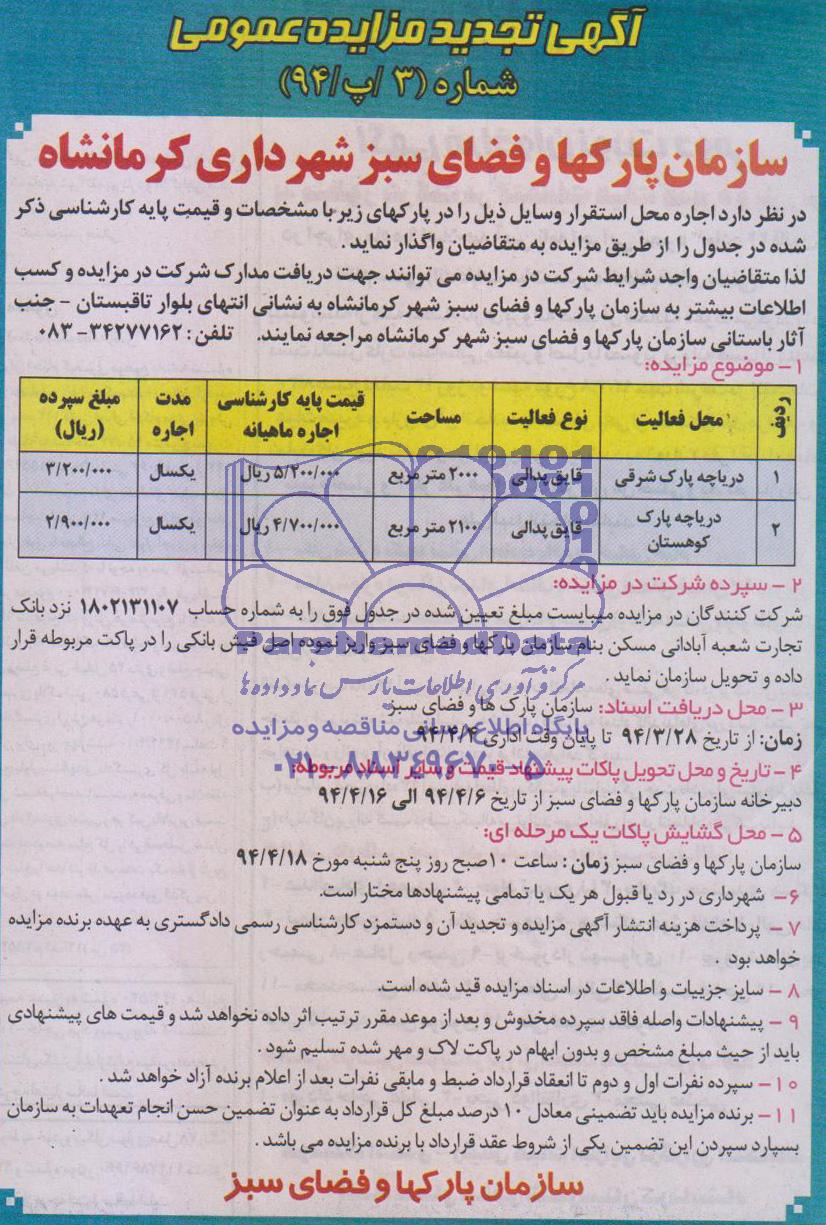 آگهی تجدید مزایده عمومی
شماره (۳ /پ/۹۴)
سازمان پارکها و فضای سبز شهرداری کرمانشاه
در نظر دارد اجاره محل استقرار وسایل ذیل را در پارکهای زیر با مشخصات و قیمت پایه کارشناسی ذکر
شده در جدول را از طریق مزایده به متقاضیان واگذار نماید .
لذا متقاضیان واجد شرایط شرکت در مزایده می توانند جهت دریافت مدارک شرکت در مزایده و کسب
اطلاعات بیشتر به سازمان پارکها و فضای سبز شهر کرمانشاه به نشانی انتهای بلوار تاقبستان - جنب
آثار باستانی سازمان پارکها و فضای سبز شهر کرمانشاه مراجعه نمایند. تلفن: ۳۴۲۷۷۱۶۲-۰۸۳
۱- موضوع مزایده:
ردیف محل فعالیت نوع فعالیت مساحت قیمت پایه کارشناسی اجاره ماهیانه مدت اجاره مبلغ سپرده (ریال)
۱ دریاچه پارک شرقی قایق پدالی ۲۰۰۰ متر مربع ۵/۲۰۰/۰۰۰ ریال یکسال ۳/۲۰۰/۰۰۰
۲ دریاچه پارک کوهستان قایق پدالی ۲۱۰۰ متر مربع ۴/۷۰۰/۰۰۰ ریال یکسال ۲/۹۰۰/۰۰۰
۲ - سپرده شرکت در مزایده:
شرکت کنندگان در مزایده میبایست مبلغ تعیین شده در جدول فوق را به شماره حساب ۱۸۰۲۱۳۱۱۰۷ نزد بانک
تجارت شعبه آبادانی مسکن بنام سازمان پارکها و فضای سبز واریز نموده اصل فیش بانکی را در پاکت مربوطه قرار
داده و تحویل سازمان نماید .
ParsNamadData
مرکز فرآوری اطلاعات پارس نماد داده ها
۳ - محل دریافت اسناد: سازمان پارک ها و فضای سبز
پایگاه اطلاع رسانی مناقصه و مزایده
زمان: از تاریخ ۹۴/۳/۲۸ تا پایان وقت اداری ۹۴/۴/۴
۰۲۱-۸۸۳۴۹۶۷۰-۵
۴ - تاریخ و محل تحویل پاکات پیشنهاد قیمت و سایر اسناد مربوطه:
دبیرخانه سازمان پارکها و فضای سبز از تاریخ ۹۴/۴/۶ الی ۹۴/۴/۱۶
۵ - محل گشایش پاکات یک مرحله ای:
سازمان پارکها و فضای سبز زمان : ساعت ۱۰صبح روز پنج شنبه مورخ ۹۴/۴/۱۸
۶- شهرداری در رد یا قبول هر یک یا تمامی پیشنهادها مختار است.
۷- پرداخت هزینه انتشار آگهی مزایده و تجدید آن و دستمزد کارشناسی رسمی دادگستری به عهده برنده مزایده
خواهد بود
۸ - سایر جزییات و اطلاعات در اسناد مزایده قید شده است.
۹ - پیشنهادات واصله فاقد سپرده مخدوش و بعد از موعد مقرر ترتیب اثر داده نخواهد شد و قیمت های پیشنهادی
باید از حیث مبلغ مشخص و بدون ابهام در پاکت لاک و مهر شده تسلیم شود .
۱۰- سپرده نفرات اول و دوم تا انعقاد قرارداد ضبط و مابقی نفرات بعد از اعلام برنده آزاد خواهد شد .
۱۱- برنده مزایده باید تضمینی معادل ۱۰ درصد مبلغ کل قرارداد به عنوان تضمین حسن انجام تعهدات به سازمان
بسپارد سپردن این تضمین یکی از شروط عقد قرارداد با برنده مزایده می باشد .
سازمان پارکها و فضای سبز